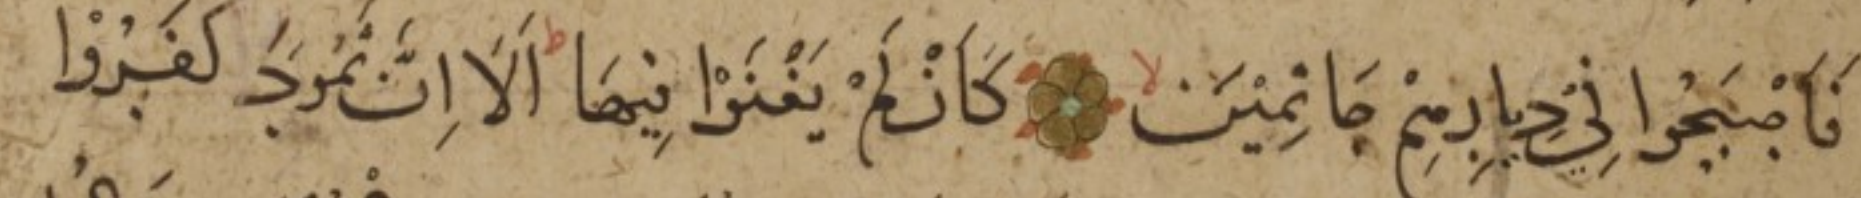 فَاَصْبَحُوا فِيْ دِيَارِهِمْ جَاثِمِيْنَ لا كَاَنْ لَمْ يَغْنَوْا فِيهَا ط اَلَا اِنَّ ثَمُودَ كَفَرُوْا